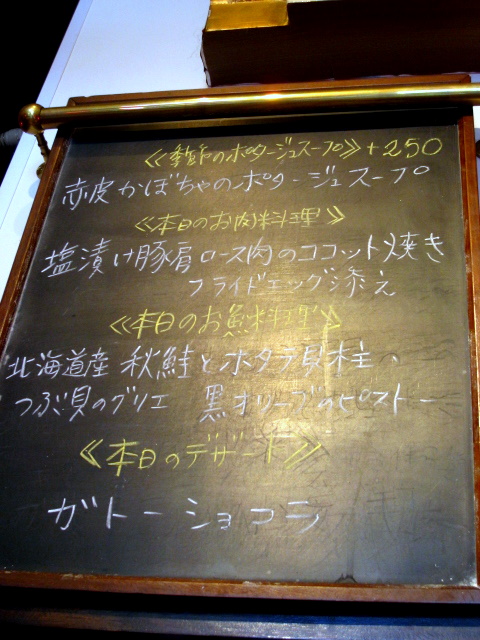 ≪季節のポタージュスープ≫+250
赤皮かぼちゃのポタージュスープ
≪本日のお肉料理≫
塩漬け豚肩ロース肉のココット焼き
フライドエッグ添え
≪本日のお魚料理≫
北海道産 秋鮭とホタテ貝柱、
つぶ貝のグリエ 黒オリーブのピストー
≪本日のデザート≫
ガトーショコラ